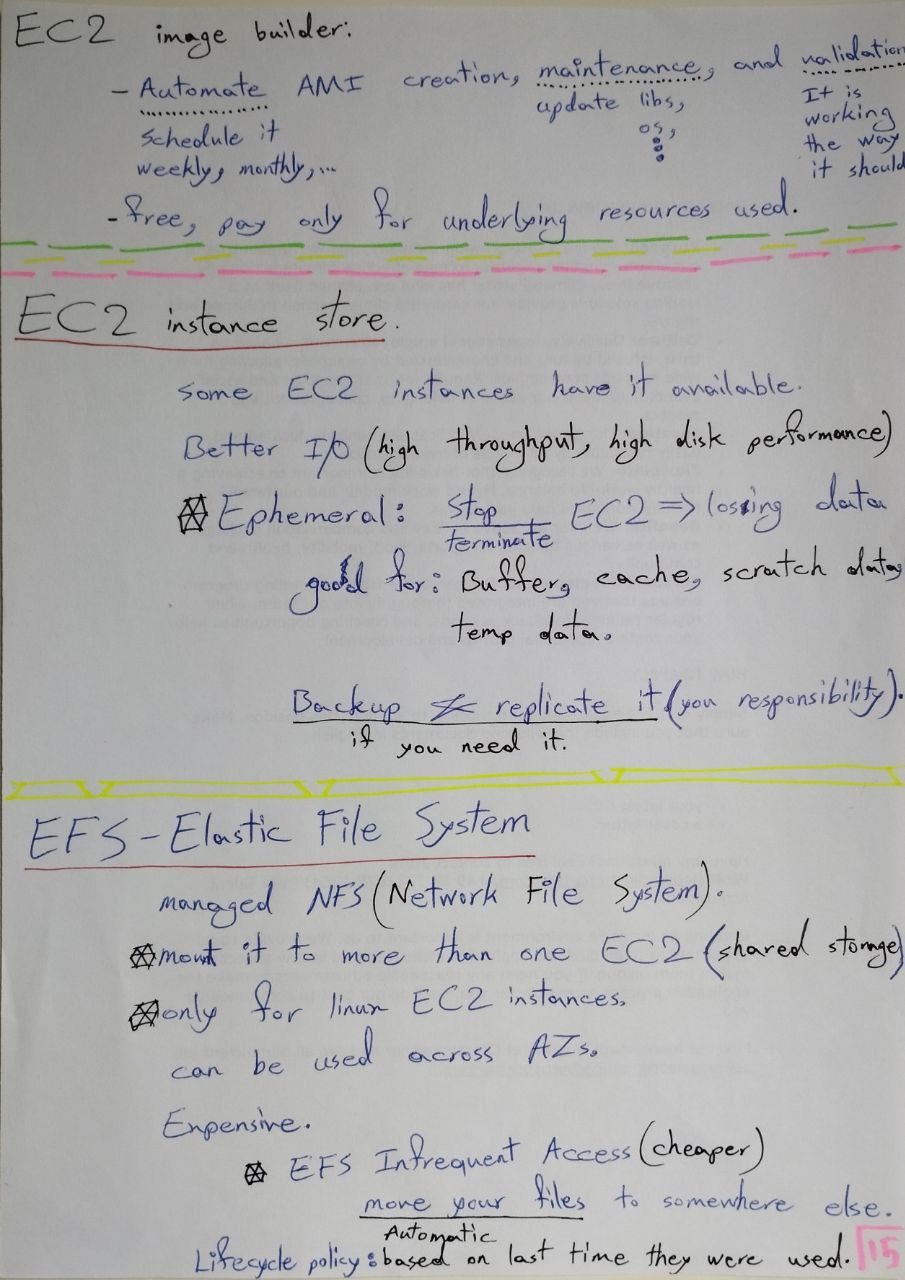 EC2 image builder:
- Automate AMI creation, maintenance, and validation
schedule it
weekly, monthly,...
update libs,
os,
It is
working
the way
it should
- free, pay only for underlying resources used.
EC2 instance store.
some EC2 instances have it available.
Better I/O (high throughput, high disk performance)
Ephemeral: stop
terminate EC2 => lossing data
good for: Buffer, cache, scratch data,
temp data.
Backup & replicate it (you responsibility).
if you need it.
EFS - Elastic File System
managed NFS (Network File System).
mount it to more than one EC2 (shared storage)
only for linux EC2 instances.
can be used across AZs.
Expensive.
EFS Infrequent Access (cheaper)
move your files to somewhere else.
Automatic
Lifecycle policy: based on last time they were used.
15